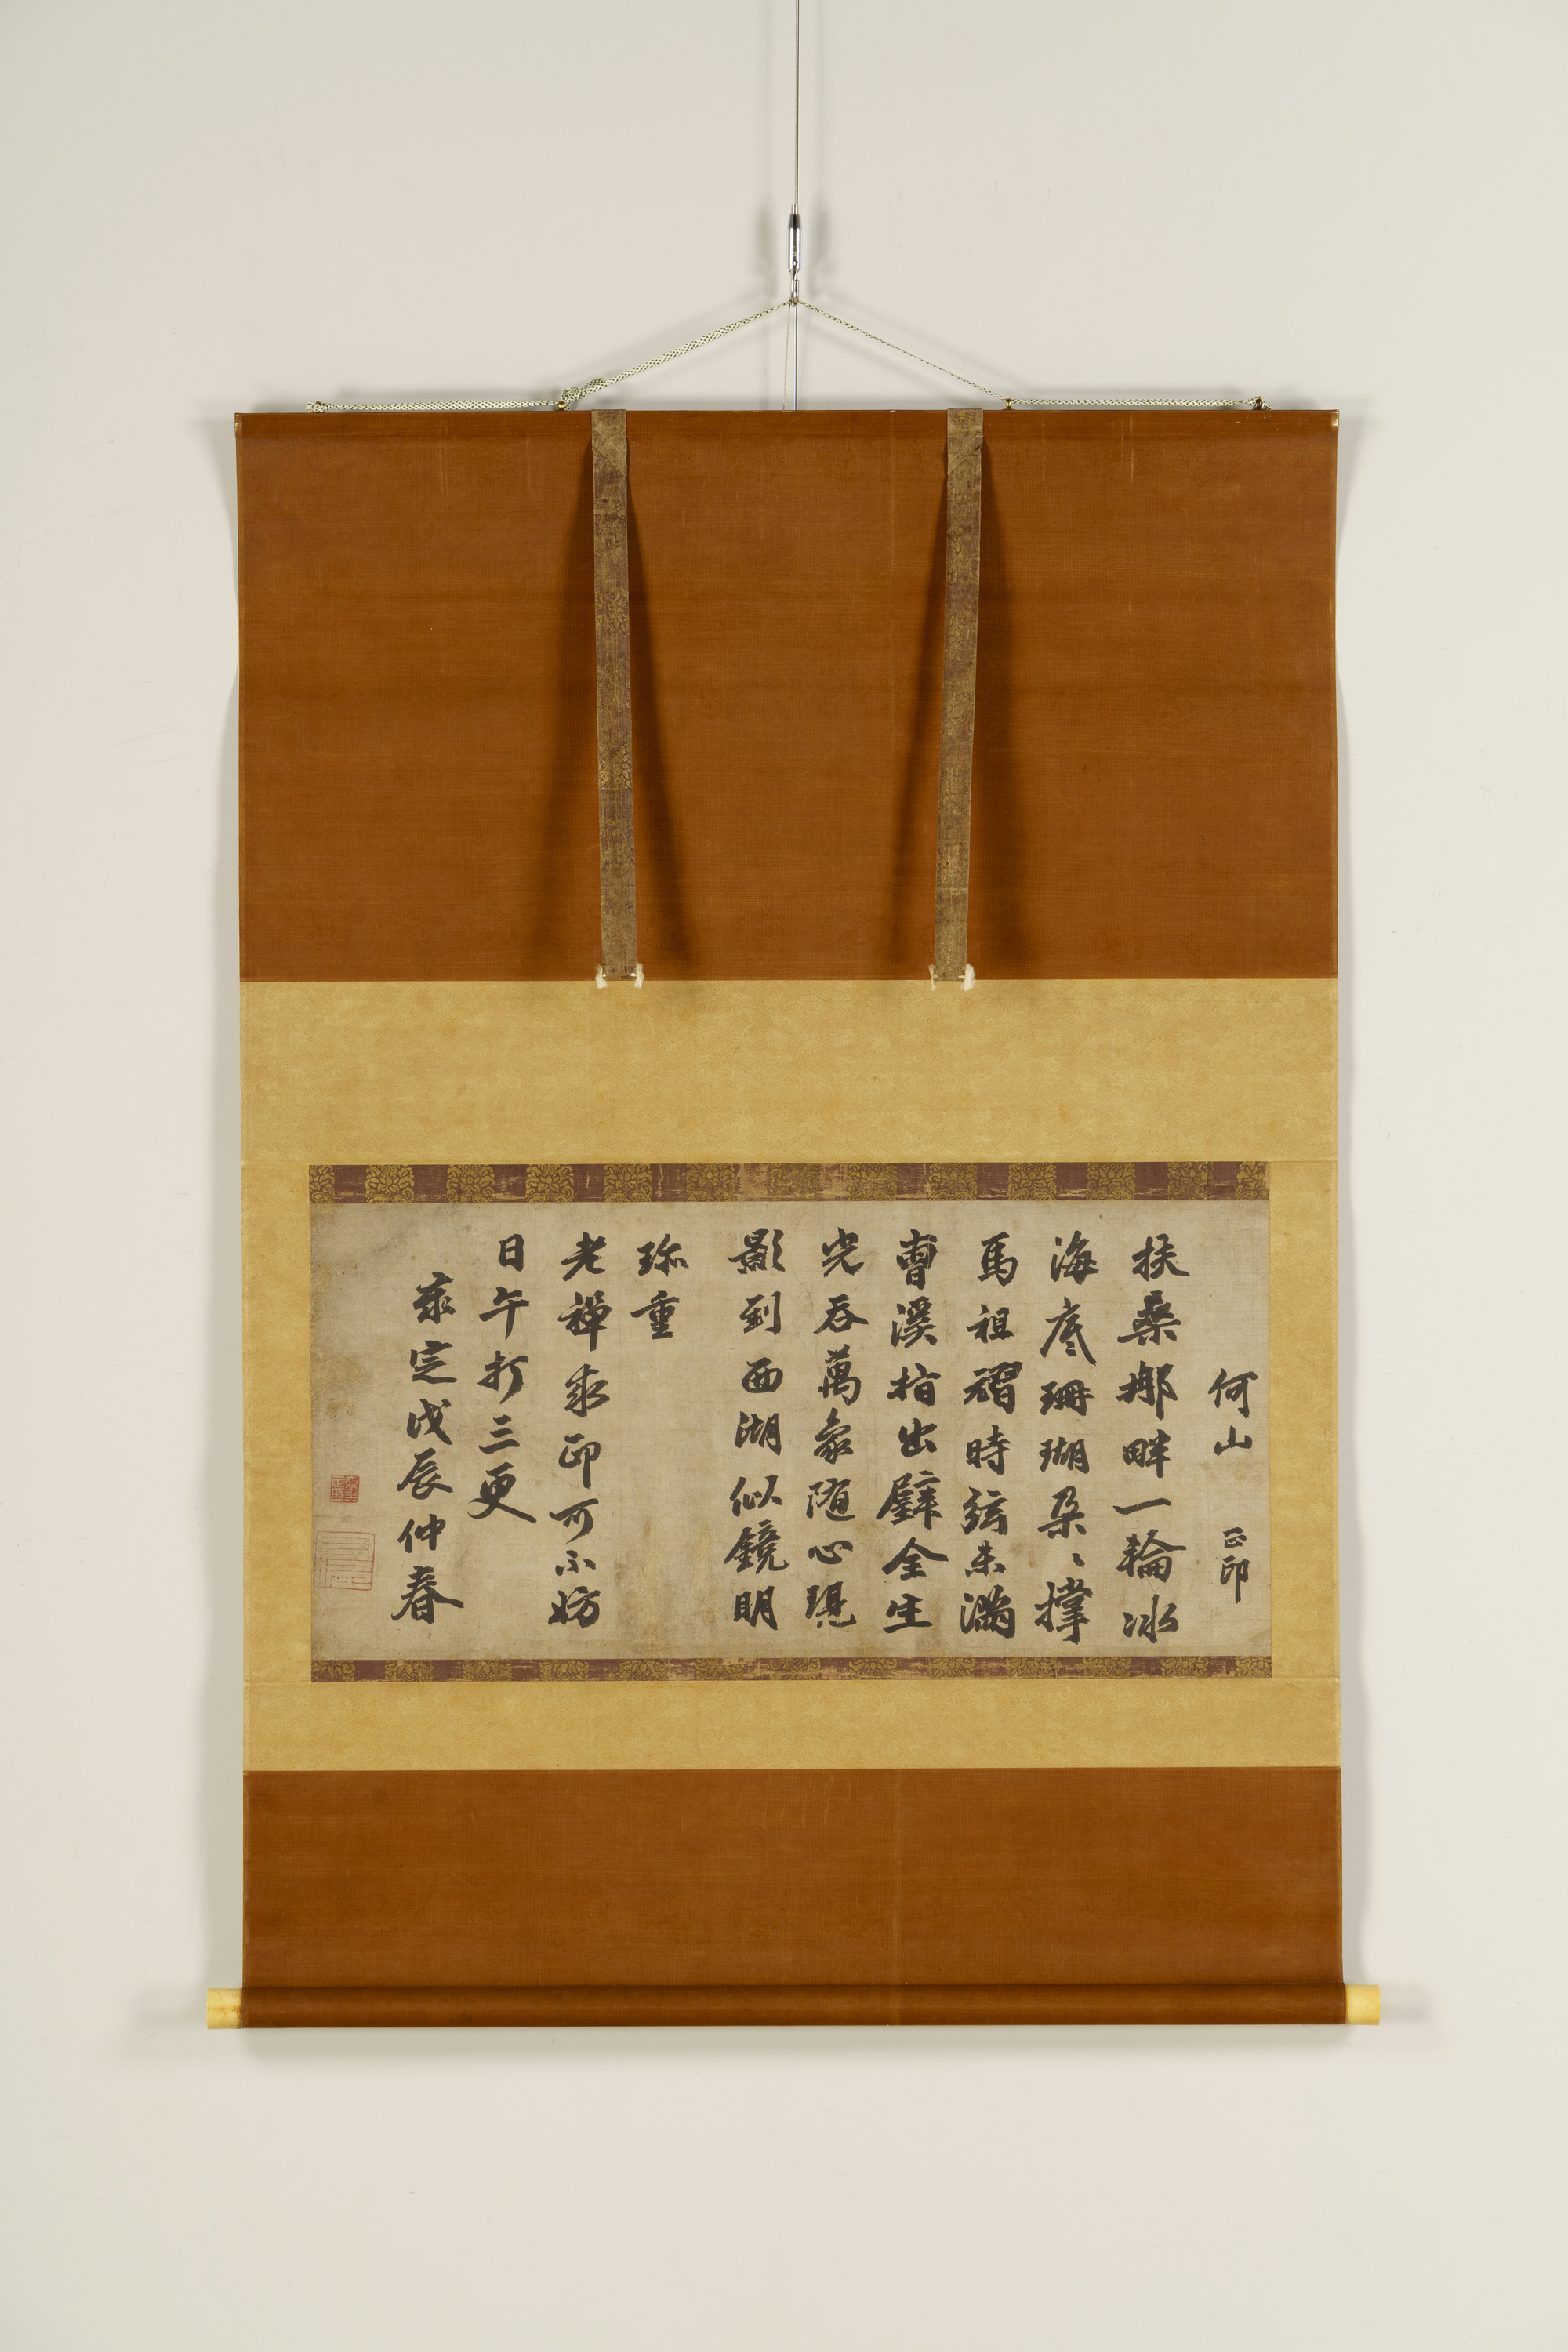 何山 正印
扶桑那畔一輪冰
海底珊瑚朵〻撑
馬祖翫時弦未滿
曹溪指出璧全生
光吞萬象随心現
影到西湖似鏡明
珎重
老禪承印可不妨
日午打三更
泰定戊辰仲春